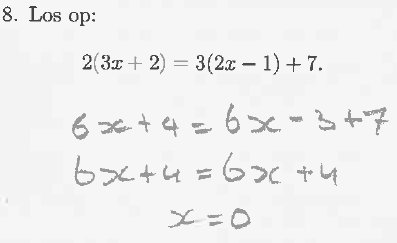 8. Los op:
2(3x + 2) = 3(2x − 1) + 7.
6x + 4 = 6x - 3 + 7
6x + 4 = 6x + 4
x = 0